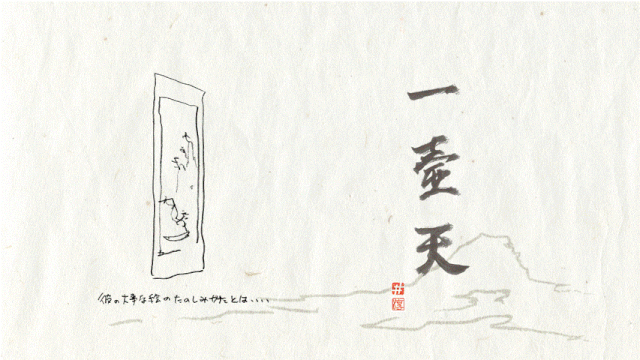 一壺天
彼の大事な絵のたのしみかたとは....